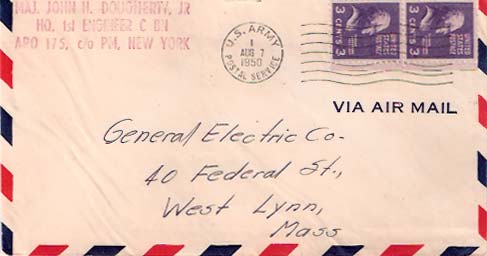 MAJ. JOHN H. DOUGHERTY, JR
HQ. 1st ENGINEER C BN
APO 175, c/o PM, NEW YORK
U.S. ARMY
1
AUG 7
1950
POSTAL SERVICE
3 CENTS 3
UNITED STATES POSTAGE
3 CENTS 3
UNITED STATES POSTAGE
VIA AIR MAIL
General Electric Co.
40 Federal St.,
West Lynn,
Mass